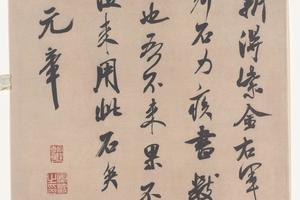 新得紫金右軍
鄉石力疾書數
也吾不來果不
來用此石矣
元章